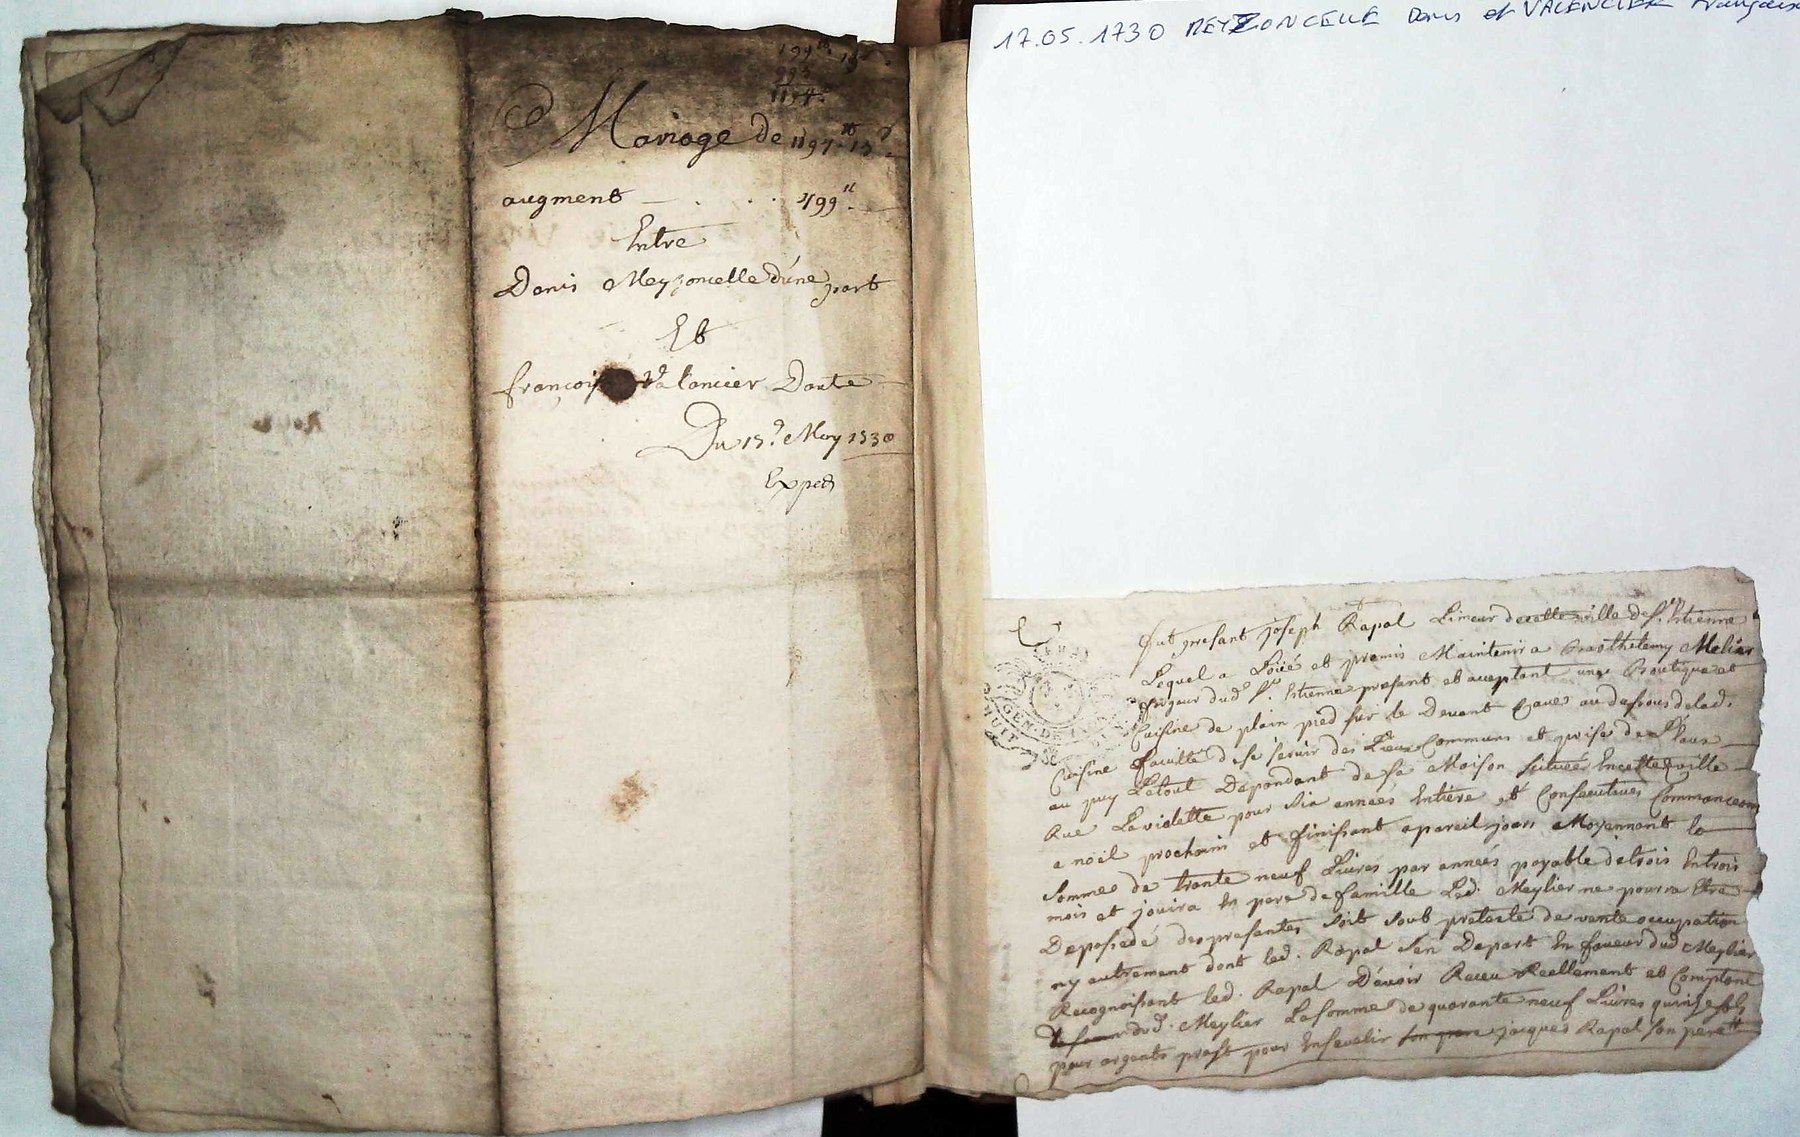 199
1194
Mariage de 1197
augment - . . . 499
Entre
Denis Meyzoncelle d'une part
Et
françoise Valancier Dautre
Du 17e May 1730
Exped
17.05.1730 MEYZONCELLE Denis et VALENCIER Françoise
fut presant joseph Rapal Limeur de cette ville de St. Etienne
Lequel a Loüé et promis Maintenir a Barthelemy Melier
forgeur dud. St. Etienne presant et aceptant une Boutique et
Cuisine de plain pied sur le Devant Cave au desous de lad.
Cuisine faculté de se servir des Lieux Communs et prise de L'eau
au puy Letout Dépendant de sa Maison scituée En cette ville
Rue Laviolette pour Six années Entiere et Consecutives Commanceant
a noël prochain et finissant a pareil jour Moyennant la
Somme de trante neuf Livres par années payable de trois En trois
mois et jouira En pere de famille Led. Meylier ne pourra Etre
Deposedé des presantes soit soub pretexte de vente occupation
ny autrement dont led. Rapal s'en Depart En faveur dud. Meylier
Recognoissant led. Rapal D'avoir Receu Reellement et Comptant
dud. Meylier La somme de quarante neuf Livres quinze sols
pour argents prest pour Ensevelir son pere jacques Rapal son pere
GEN. DE LYON
HUIT